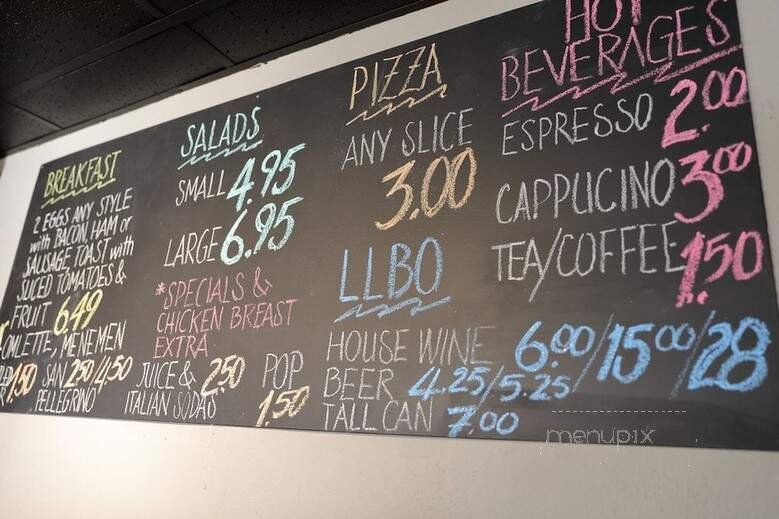 BREAKFAST
2 EGGS ANY STYLE
with BACON, HAM or
SAUSAGE, TOAST with
SLICED TOMATOES &
FRUIT 6.49
OMLETTE, MENEMEN
1.50
SAN 2.50/4.50
PELLEGRINO
SALADS
SMALL 4.95
LARGE 6.95
*SPECIALS &
CHICKEN BREAST
EXTRA
JUICE & 2.50
ITALIAN SODAS
POP
1.50
PIZZA
ANY SLICE
3.00
LLBO
HOUSE WINE 6.00/15.00/28
BEER 4.25/5.25
TALL CAN 7.00
HOT
BEVERAGES
ESPRESSO 2.00
CAPPUCINO 3.00
TEA/COFFEE 1.50
menupix